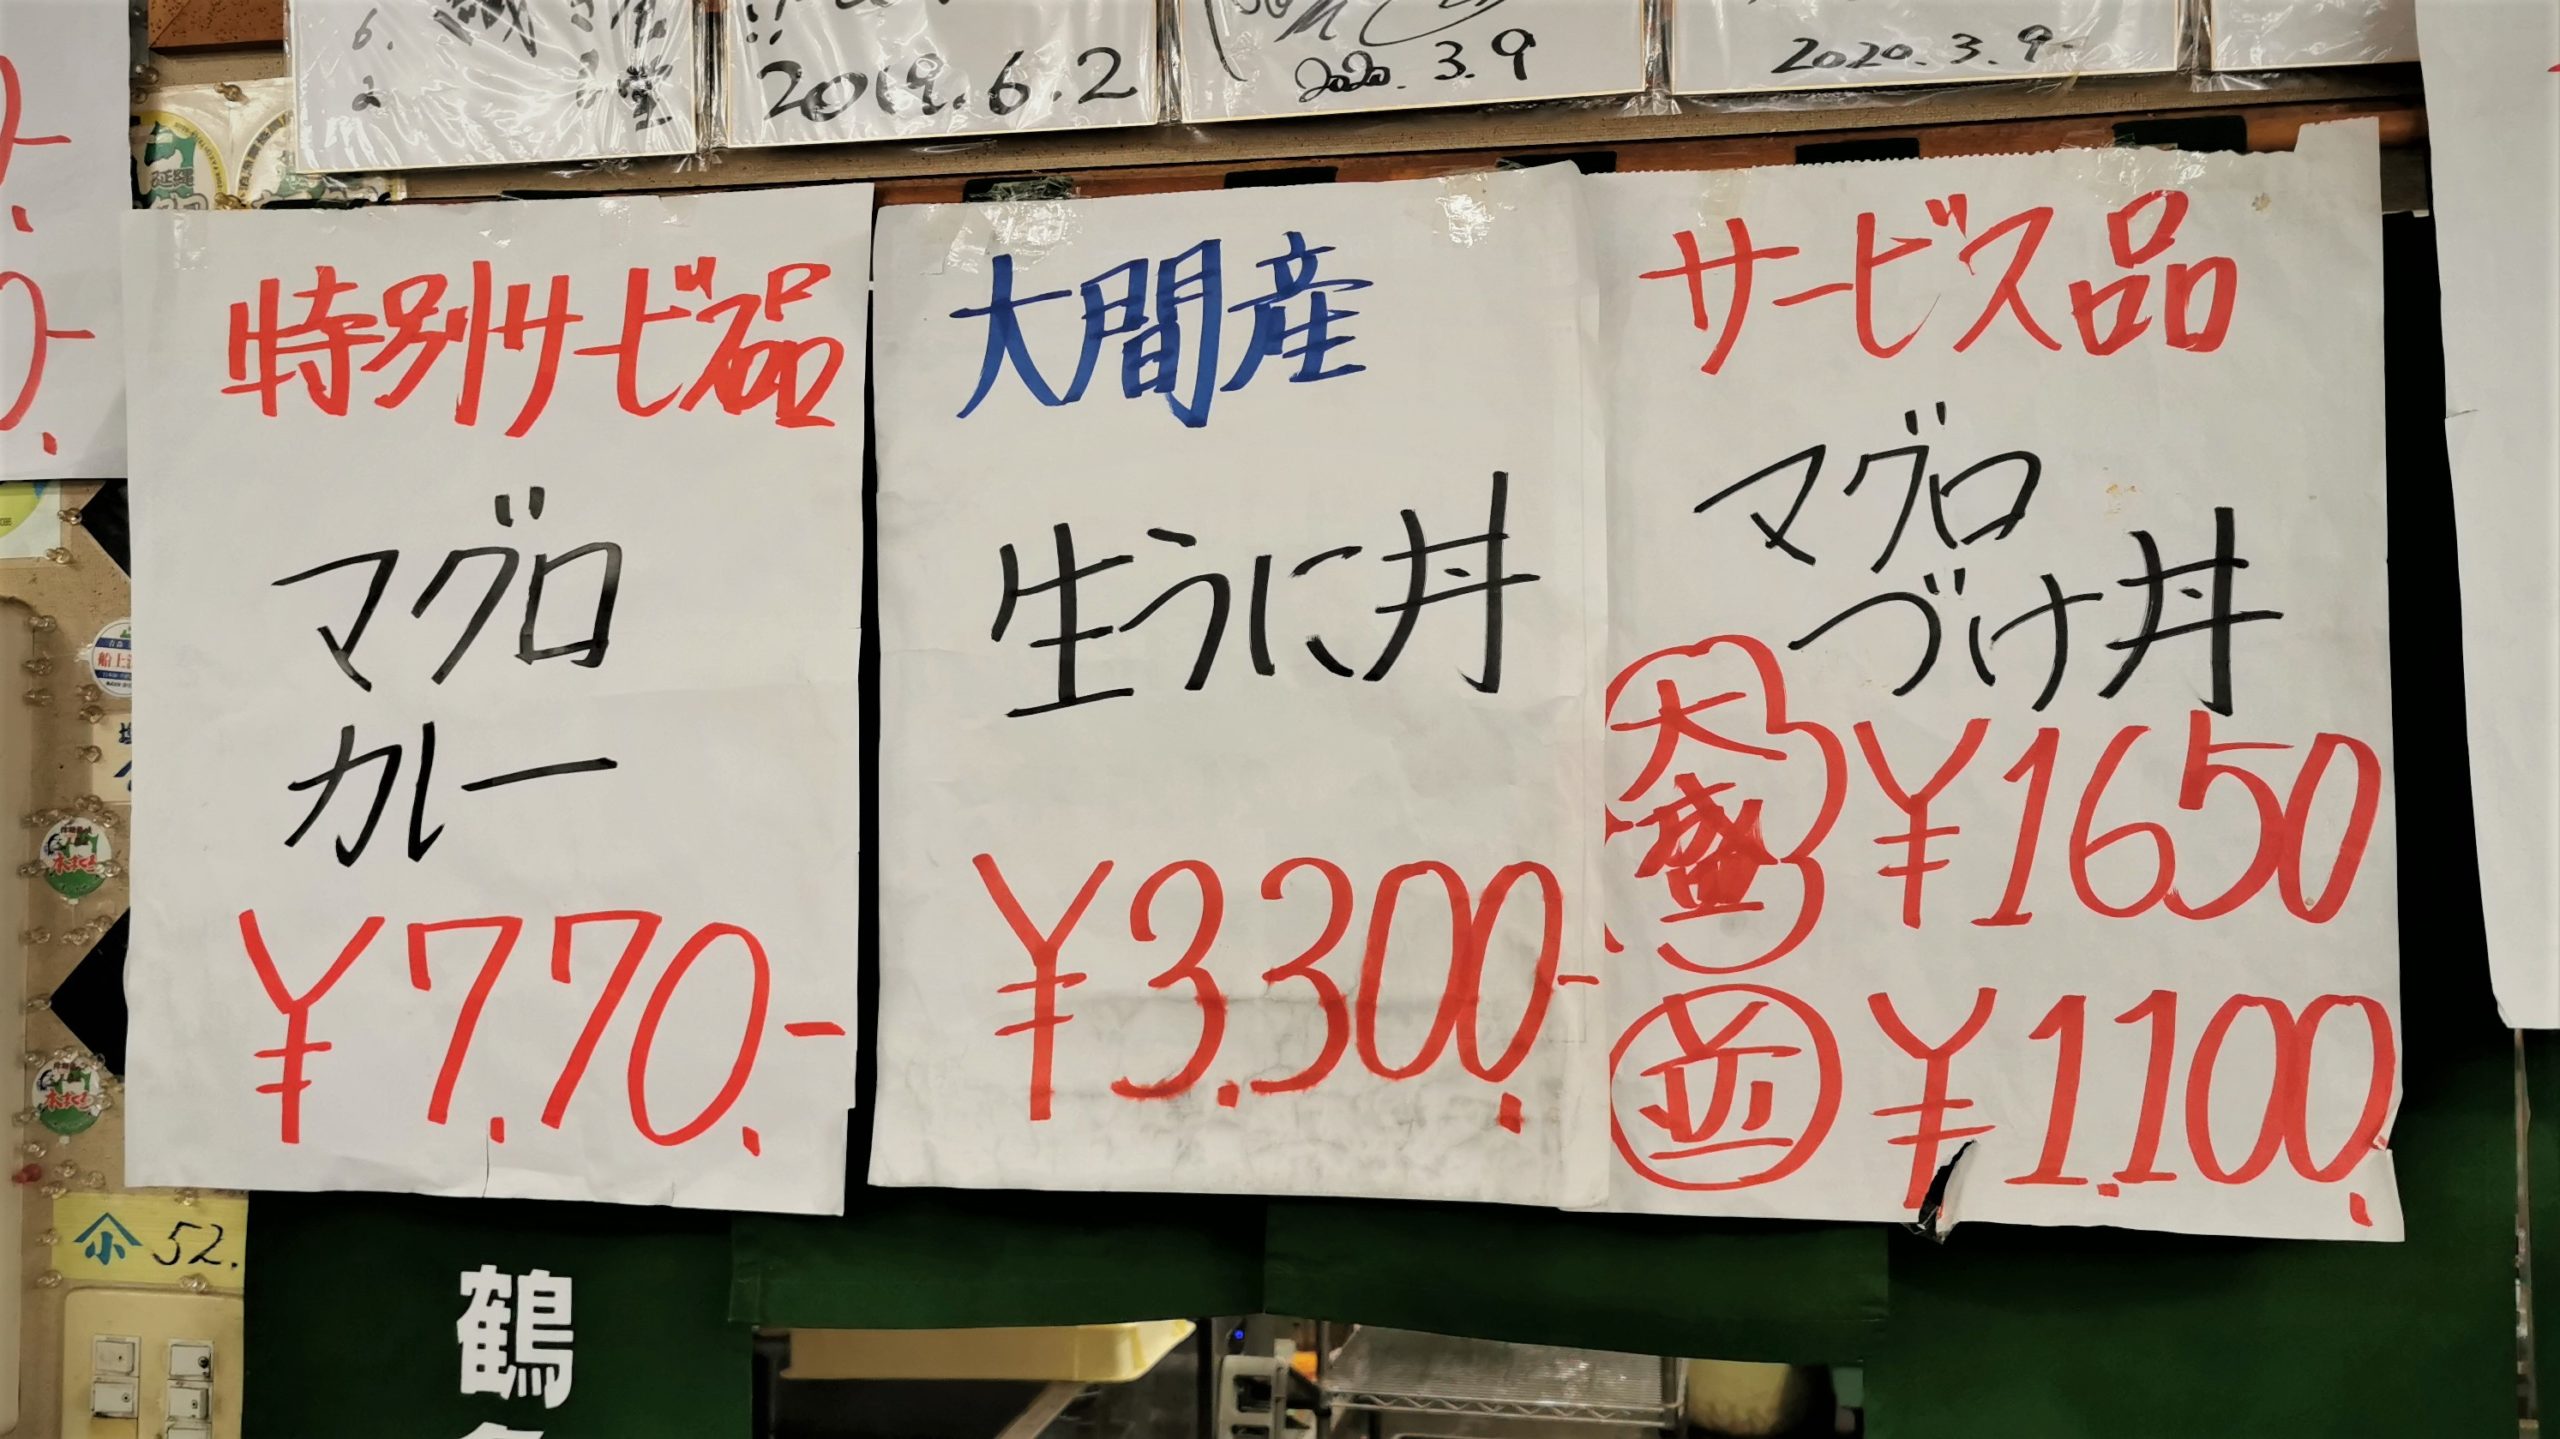 6.
2
堂
2019.6.2
2020.3.9
2020.3.9-
特別サービス品
マグロ
カレー
¥7.70.-
大間産
生うに丼
¥3.300.-
サービス品
マグロ
づけ丼
大盛 ¥1650
並 ¥1.100.
延縄
船上
本まぐろ
本まぐろ
小 52.
鶴